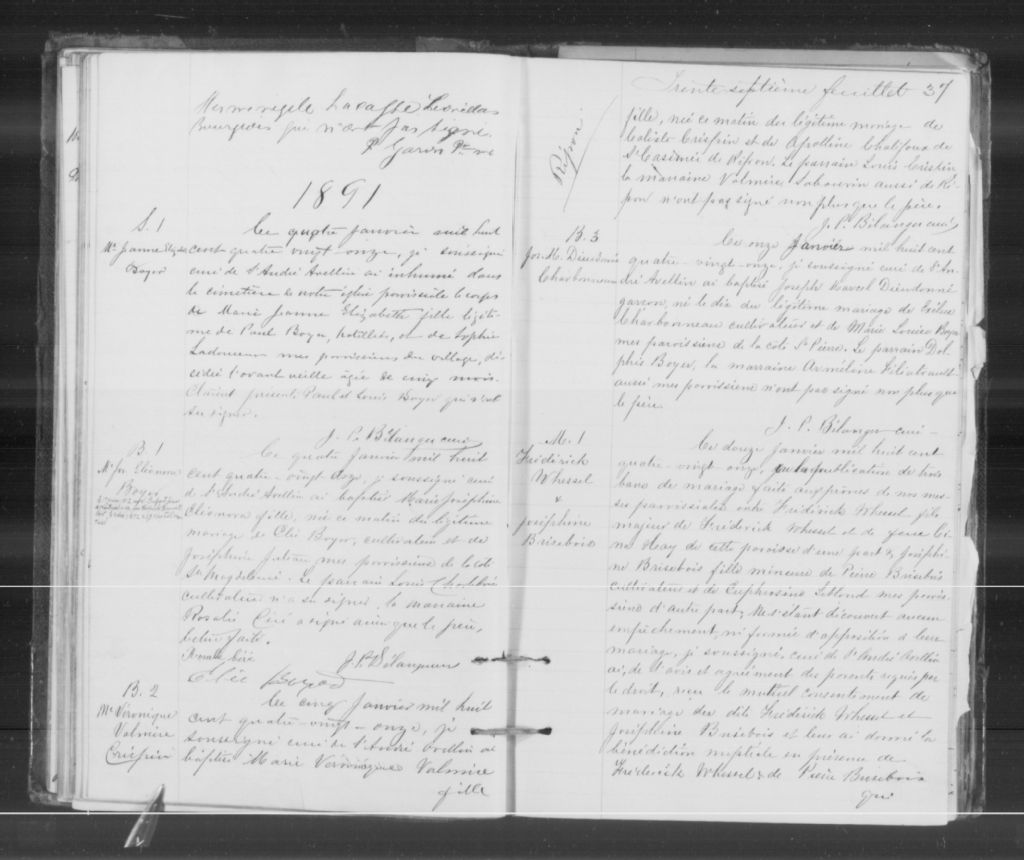 Hermenegile Lacasse Leonidas
bourgeois qui n'ont pas signé.
P. Garon Ptre
1891
S. 1
Me Jeanne Elyza
Boyer
Le quatre janvier mil huit
cent quatre vingt onze, je soussigné
curé de St André Avellin ai inhumé dans
le cimetière de notre église paroissiale le corps
de Marie Jeanne Elizabeth fille légiti
me de Paul Boyer, hotellier, et de Sophie
Ladouceur mes paroissiens du village, dé
cédée l'avant veille agée de cinq mois.
Etaient présent, Paul et Louis Boyer qui n'ont
su signer.
J. P. Bélanger curé
B. 1
Me Jne Eléonora
Boyer
Le quatre janvier mil huit
cent quatre-vingt onze, je soussigné curé
de St André Avellin ai baptisé Marie Joséphine
Eléonora fille, née ce matin du légitime
mariage de Elie Boyer, cultivateur et de
Joséphine mes paroissiens de la côte
Ste Magdeleine. Le parrain Louis
cultivateur n'a su signer, la marraine
Rosalie Céré a signé ainsi que le père,
lecture faite.
Rosalie Céré
J. P. Bélanger
Elie Boyer
B. 2
Me Véronique
Valmire
Crispin
Le cinq Janvier mil huit
cent quatre-vingt-onze, je
soussigné curé de St André Avellin ai
baptisé Marie Véronique Valmire
fille
Trente septième feuillet 37
Ripon
fille, née ce matin du légitime mariage de
Caliste Crispin et de Apolline Chalifoux de
St Casimir de Ripon. Le parrain Louis Crispin
la marraine Valmire Sabourin aussi de Ri-
pon n'ont pas signé non plus que le père.
J. P. Bélanger curé
B. 3
Jos. M. Dieudonné
Charbonneau
Le onze Janvier mil huit cent
quatre-vingt-onze, je soussigné curé de St An-
dré Avellin ai baptisé Joseph Dieudonné
garçon, né le dix du légitime mariage de
Charbonneau cultivateur et de Marie Louise Boyer
mes paroissiens de la côte St Pierre. Le parrain Dol-
phis Boyer, la marraine Armélene
aussi mes paroissiens n'ont pas signé non plus que
le père.
J. P. Bélanger curé
M. 1
Fréderick
Whessel
&
Joséphine
Brisebois
Le douze janvier mil huit cent
quatre-vingt onze, vu la publication de trois
bans de mariage faite aux prônes de nos mes-
ses paroissiales entre Fréderick Whessel fils
majeur de Fréderick Whessel et de
Hay de cette paroisse d'une part & Joséphi-
ne Brisebois fille mineure de Pierre Brisebois
cultivateur et de Euphersine Leblond mes parois-
siens d'autre part; Ne s'étant découvert aucun
empêchement ni formée d'opposition à leur
mariage, je soussigné, curé de St André Avellin
ai, de l'avis et agrément des parents requis par
le droit, reçu le mutuel consentement de
mariage des dits Fréderick Whessel et
Joséphine Brisebois et leur ai donné la
bénédiction nuptiale en présence de
Fréderick Whessel & de Pierre Brisebois
qui